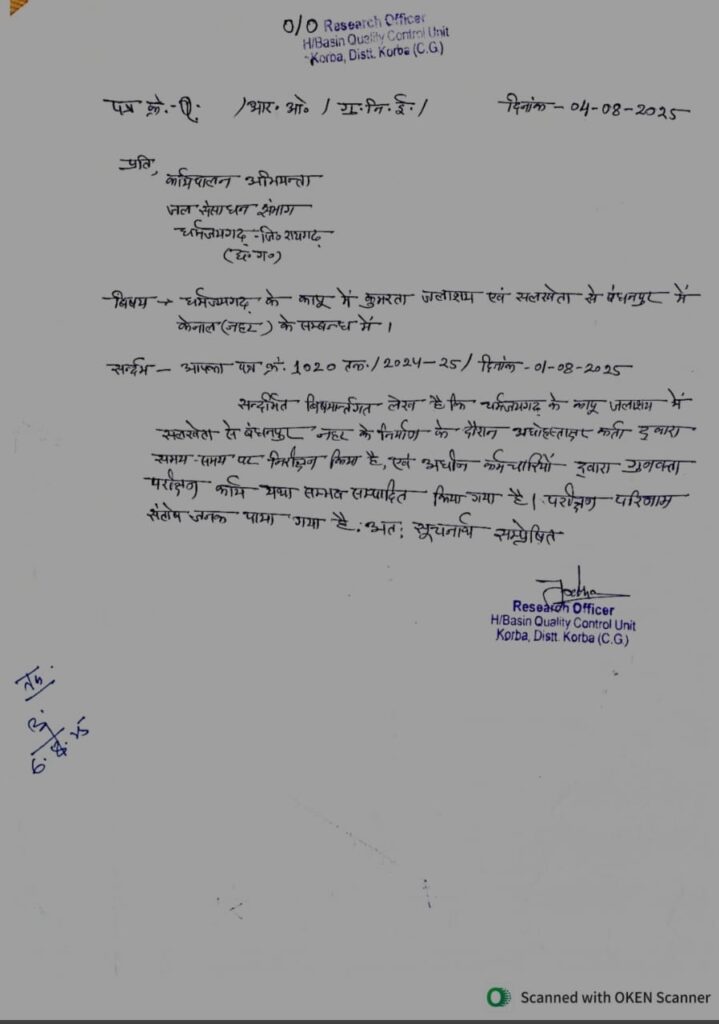 O/O Research Officer
H/Basin Quality Control Unit
Korba, Distt. Korba (C.G.)
पत्र क्रं.- /आर. ओ. / गु. नि. ई. / दिनांक - 04-08-2025
प्रति,
कार्यपालन अभियन्ता
जल संसाधन संभाग
धर्मजयगढ़ - जि० रायगढ़
(छ० ग०)
विषय → धर्मजयगढ़ के कापू में कुमरता जलाशय एवं सलखेता से बंधनपुर में
केनाल (नहर) के सम्बन्ध में ।
सन्दर्भ - आपका पत्र क्रं. 1020 तक. / 2024-25 / दिनांक - 01-08-2025
सन्दर्भित विषयान्तर्गत लेख है कि धर्मजयगढ़ के कापू जलाशय में
सलखेता से बंधनपुर नहर के निर्माण के दौरान अधोहस्ताक्षर कर्ता द्वारा
समय-समय पर निरीक्षण किया है, एवं अधीन कर्मचारियों द्वारा गुनवक्ता
परीक्षण कार्य यथा सम्भव सम्पादित किया गया है। परीक्षण परिणाम
संतोष जनक पाया गया है. अत: सूचनार्थ सम्प्रेषित
Research Officer
H/Basin Quality Control Unit
Korba, Distt. Korba (C.G.)
6.8.25
Scanned with OKEN Scanner